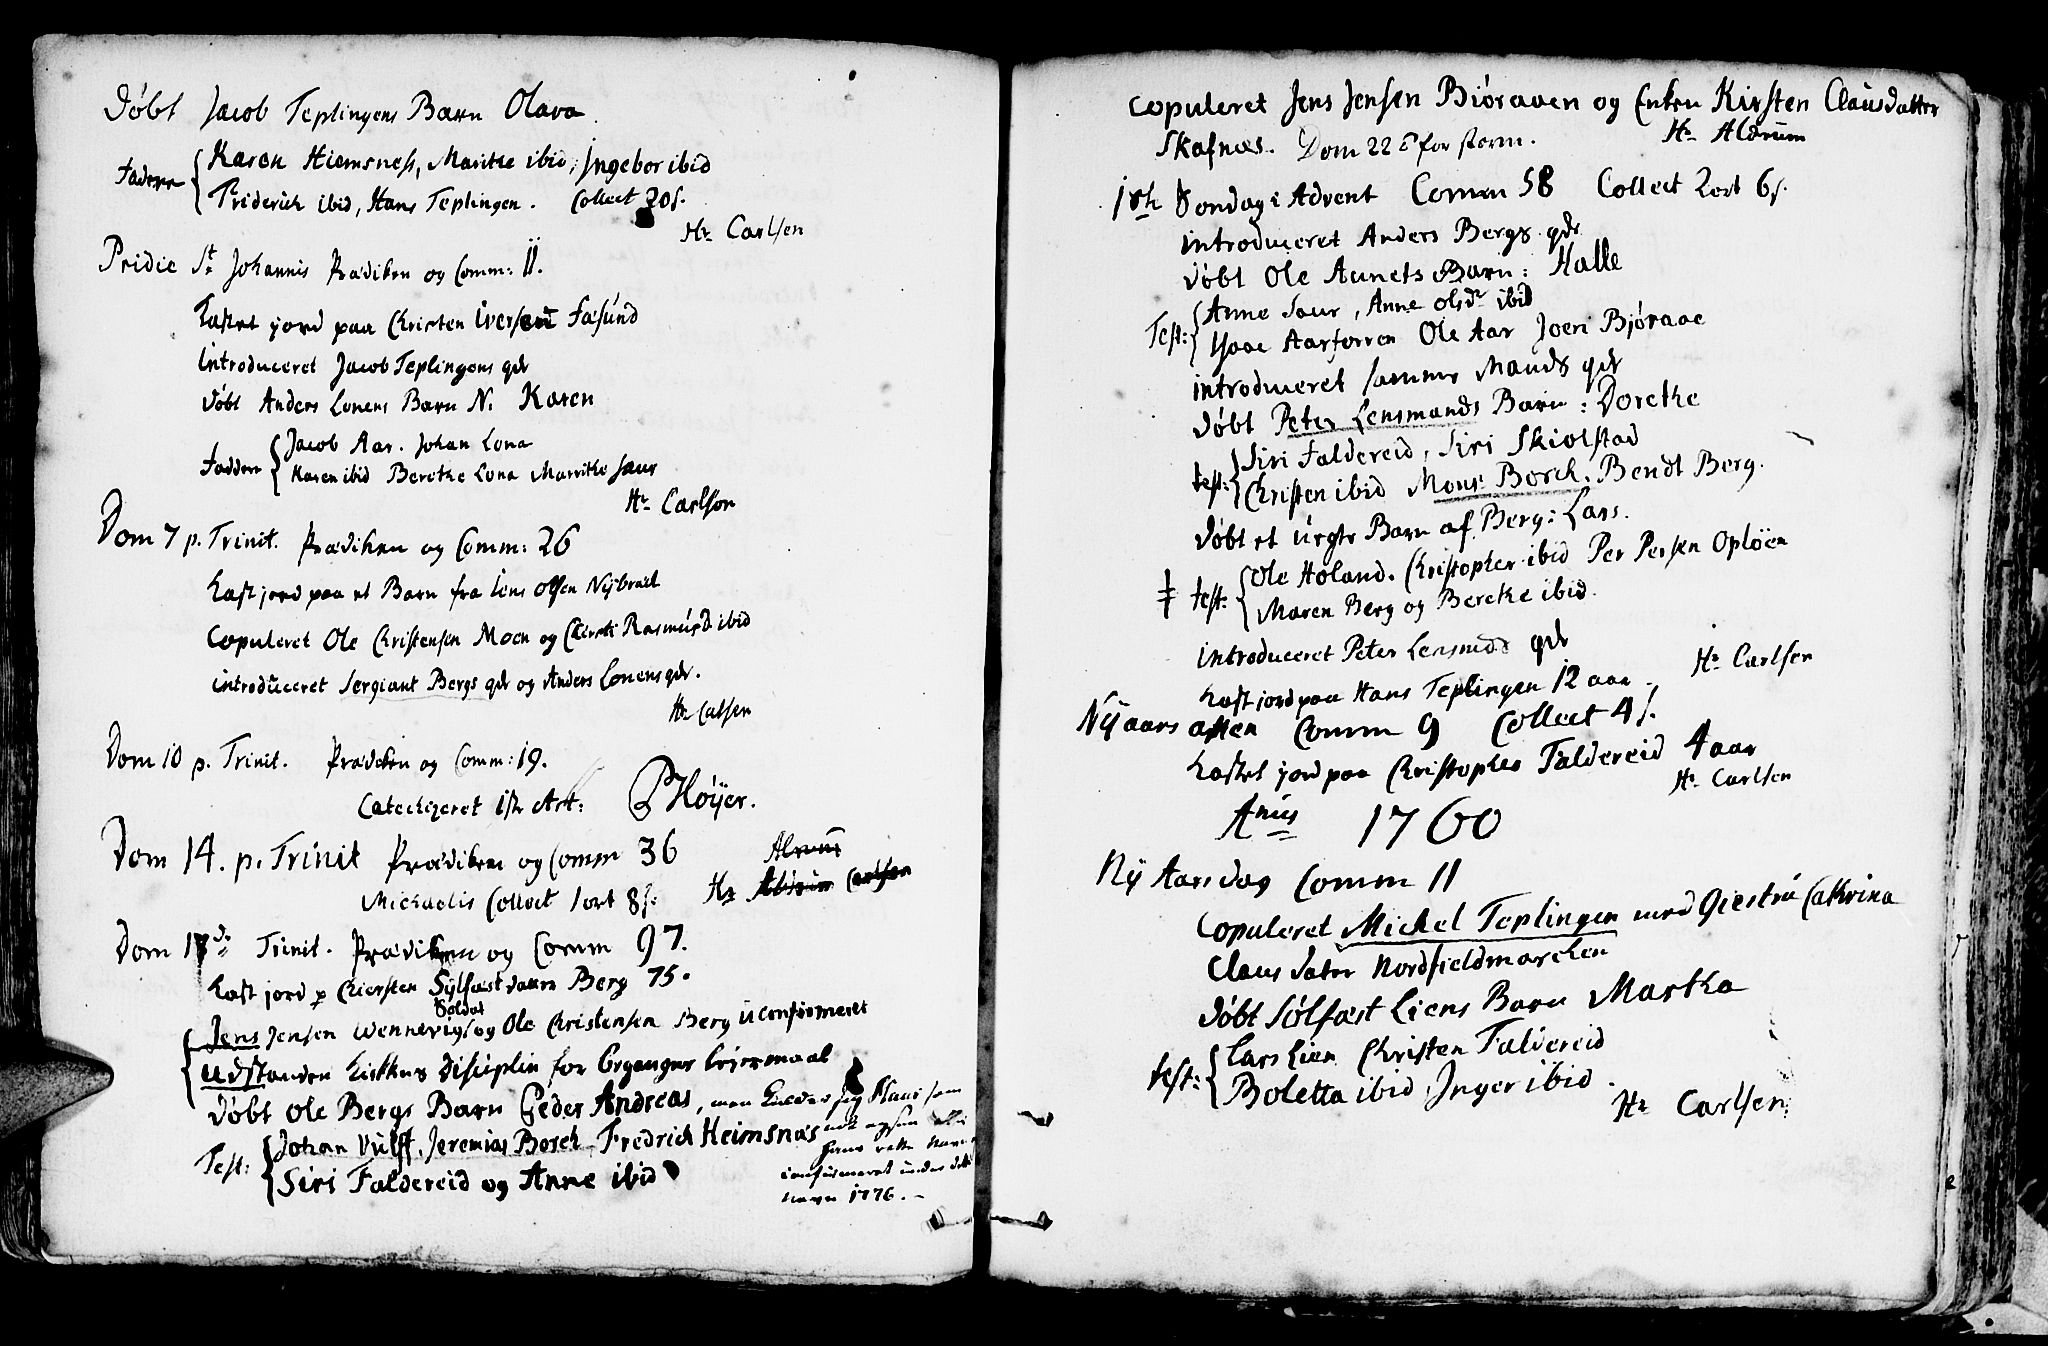 Døbt Jacob Teplingens Barn Olava
Faddere Karen Hiemsness, Maritte ibid, Ingebor ibid
Friderich ibid, Hans Teplingen. Collect 20s.
Hr Carlsen
Pridie St Johannis Prædiken og Comm: 11.
Kastet jord paa Christen Iversen Fæsund
Introduceret Jacob Teplingens qdr
Døbt Anders Lonens Barn N. Karen
Faddere Jacob Aar. Johan Lona
Karen ibid Berethe Lona Marrithe Saur
Hr Carlson
Dom 7 p. Trinit. Prædiken og Comm: 26
Kast jord paa et Barn fra Iens Olsen
Copuleret Ole Christensen Moen og Chirsti Rasmusd. ibid
introduceret Sergiant Bergs qdr og Anders Lonens qdr.
Hr Calsen
Dom 10 p. Trinit. Prædiken og Comm: 19.
Catechizeret 1ste Art: PHøyer.
Dom 14. p. Trinit Prædiken og Comm 36
Michaelis Collect 1 ort 8s.
Hr Carlsen
Dom 17de Trinit. Prædiken og Comm 97.
Kast jord p Chiersten Sylfæstdaurn Berg 75.
Soldat
Jens Jensen Wennevigs og Ole Christensen Berg uconfirmeret
Udstanden Kirkens Disiplin for begangne Leiermaal
Døbt Ole Bergs Barn Peder Andreas, men kalder sig Klaus som
Test: Johan Vulff, Jeremias Borch, Fredrich Heimsnæs
Siri Faldereid og Anne ibid
nok ogsaa
hans rette Navn
confirmeret under dette
navn 1776.
Copuleret Jens Jensen Biøraaen og Enken Kirsten Clausdatter
Skafnæs. Dom 22 for storm. Hr Aldrum
1ste Søndag i Advent Comm 58 Collect 2 ort 6s.
introduceret Anders Bergs qdr
Døbt Ole Aunets Barn: Halle
Test: Anne Saur, Anne olsdr ibid
Isaac Aarforren Ole Aar Joen Bjøraae
introduceret samme Mands qdr
Døbt Peter Lensmands Barn: Dorethe
test: Siri Faldereid, Siri Skiolstad
Christen ibid Monsr Borch. Bendt Berg.
Døbt et uegte Barn af Berg: Lars.
test: Ole Holand. Christopher ibid Per Persen Opløen
Maren Berg og Berethe ibid.
introduceret Peter Lensmds qdr
Hr Carlsen
Kast jord paa Hans Teplingen 12 aar
Nyaars aften Comm 9 Collect 4s.
Kastet jord paa Christopher Faldereid 4 aar
Hr Carlsen
Anus 1760
Ny Aarsdag Comm 11
Copuleret Mickel Teplingen med Giestru Cathrina
Claus dater Nordfieldmarchen
Døbt Sølfæst Liens Barn Martha
test: Lars Lien Christen Faldereid
Boletta ibid, Inger ibid.
Hr Carlsen